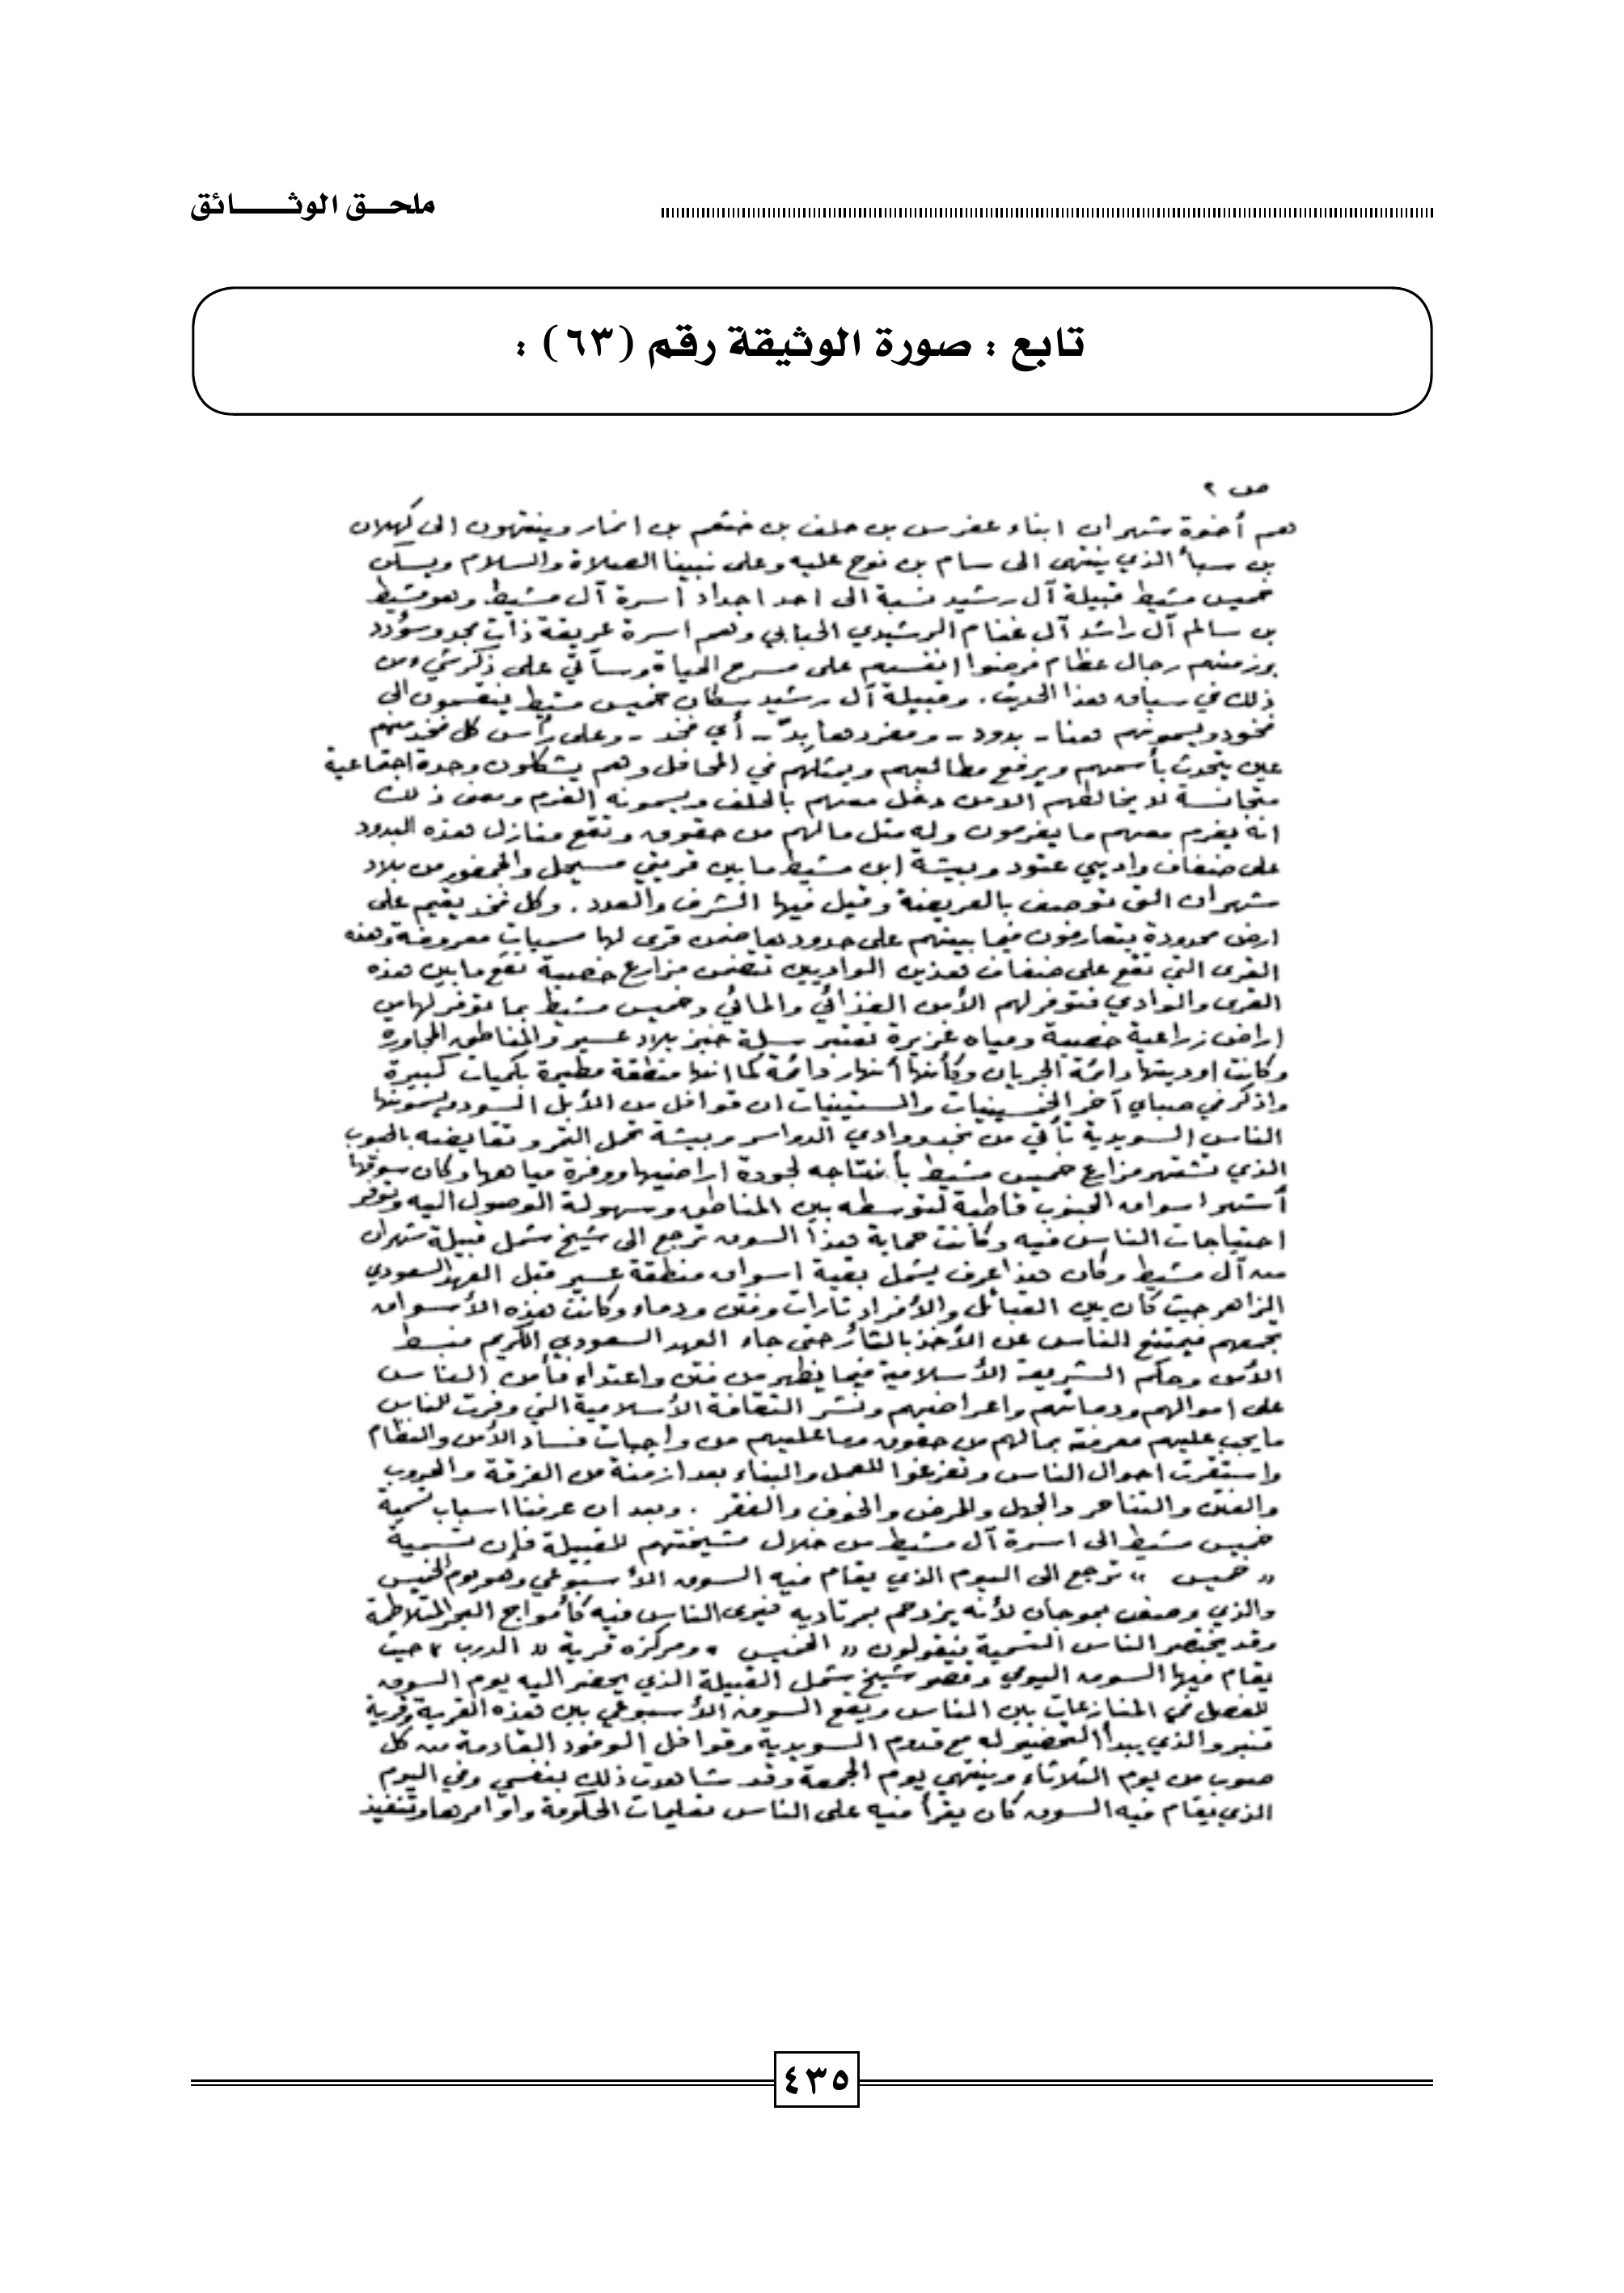 ملحـــق الوثـــــــائق
تابع : صورة الوثيقة رقم (٦٣) :
ص ٢
هم أخوة شهران ابناء عفرس بن حلف بن خثعم بن انمار وينتهون الى كهلان
بن سبأ الذي ينتهى الى سام بن نوح عليه وعلى نبينا الصلاة والسلام ويسكن
خميس مشيط قبيلة آل رشيد نسبة الى احد اجداد أسرة آل مشيط وهو مشيط
بن سالم آل راشد آل غنام الرشيدي الحبابي وهم اسرة عريقة ذات مجد وسؤدد
برز منهم رجال عظام فرضوا انفسهم على مسرح الحياة وسآتي على ذكر شيء من
ذلك في سياق هذا الحديث . وقبيلة آل رشيد سكان خميس مشيط ينقسمون الى
فخود ويسمونهم هنا - بدود - ومفردها بدّ - أي فخد - وعلى رأس كل فخد منهم
عين يتحدث بأسمهم ويرفع مطالبهم ويمثلهم في المحافل وهم يشكلون وحدة اجتماعية
متجانسة لا يخالطهم الا من دخل معهم بالحلف ويسمونه الغرم ومعنى ذلك
انه يغرم معهم ما يغرمون وله مثل مالهم من حقوق وتقع منازل هذه البدود
على ضفاف واديي عتود وبيشة ابن مشيط ما بين قريتي مسيحل والخمضور من بلاد
شهران التي توصف بالعريضة وقيل فيها الشرف والعدد . وكل فخد يقيم على
ارض محدودة يتعارفون فيما بينهم على حدودها ضمن قرى لها مسميات معروفة وهذه
القرى التي تقع على ضفاف هذين الواديين تتضمن مزارع خصبة تقع ما بين هذه
القرى والوادي فتوفر لهم الأمن الغذائي والمائي وخميس مشيط بما توفر لها من
اراض زراعية خصبة ومياه غزيرة تعتبر سلة خبز بلاد عسير والمناطق المجاورة
وكانت اوديتها دائمة الجريان وكأنها أنهار دائمة كما انها منطقة مطيرة بكميات كبيرة
واذكر في صباي آخر الخمسينيات والستينيات ان قوافل من الأبل السود ويسمونها
الناس السويدية تأتي من نجد ووادي الدواسر وبيشة تحمل التمر وتقايضه بالحبوب
الذي تشتهر مزارع خميس مشيط بأنتاجه لجودة اراضيها ووفرة مياهها وكان سوقها
أشهر اسواق الجنوب قاطبة لتوسطه بين المناطق وسهولة الوصول اليه وتوفر
احتياجات الناس فيه وكانت حماية هذا السوق ترجع الى شيخ شمل قبيلة شهران
من آل مشيط وكان هذا عرف يشمل بقية اسواق منطقة عسير قبل العهد السعودي
الزاهر حيث كان بين القبائل والأفراد ثارات وفتن ودماء وكانت هذه الأسواق
تجمعهم فيمتنع الناس عن الأخذ بالثأر حتى جاء العهد السعودي الكريم فبسط
الأمن وحكم الشريعة الأسلامية فيما يظهر من فتن واعتداء فأمن الناس
على اموالهم ودمائهم واعراضهم ونشر الثقافة الأسلامية التي وفرت للناس
ما يجب عليهم معرفته بمالهم من حقوق وما عليهم من واجبات فساد الأمن والنظام
واستقرت احوال الناس وتفرغوا للعمل والبناء بعد ازمنة من الفرقة والحروب
والفتن والتناحر والجهل والمرض والخوف والفقر . وبعد ان عرفنا اسباب تسمية
خميس مشيط الى اسرة آل مشيط من خلال مشيختهم للقبيلة فإن تسمية
« خميس » ترجع الى اليوم الذي يقام فيه السوق الأسبوعي وهو يوم الخميس
والذي وصف بموجان لأنه يزدحم بمرتاديه فيرى الناس فيه كأمواج البحر المتلاطمة
وقد يختصر الناس التسمية فيقولون « الخميس » ومركزه قرية « الدرب » حيث
يقام فيها السوق اليومي وقصر شيخ شمل القبيلة الذي يحضر اليه يوم السوق
للفصل في المنازعات بين الناس ويقع السوق الأسبوعي بين هذه القرية وقرية
قنبر والذي يبدأ التحضير له مع قدوم السويدية وقوافل الوفود القادمة من كل
صوب من يوم الثلاثاء وينتهي يوم الجمعة وقد شاهدت ذلك بنفسي وفي اليوم
الذي يقام فيه السوق كان يقرأ فيه على الناس تعليمات الحكومة واوامرها وتنفيذ
٤٣٥